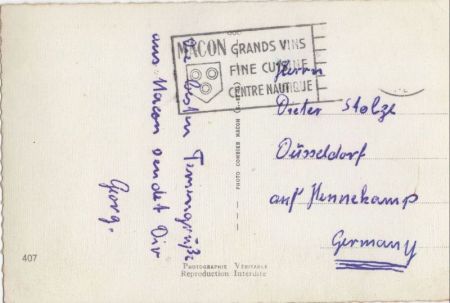 MACON GRANDS VINS
FINE CUISINE
CENTRE NAUTIQUE
Die besten Feriengrüße
aus Macon sendet Dir
Georg.
Herrn
Dieter Stolze
Düsseldorf
auf'm Hennekamp
Germany
PHOTO COMBIER MACON
407
PHOTOGRAPHIE VÉRITABLE
Reproduction Interdite